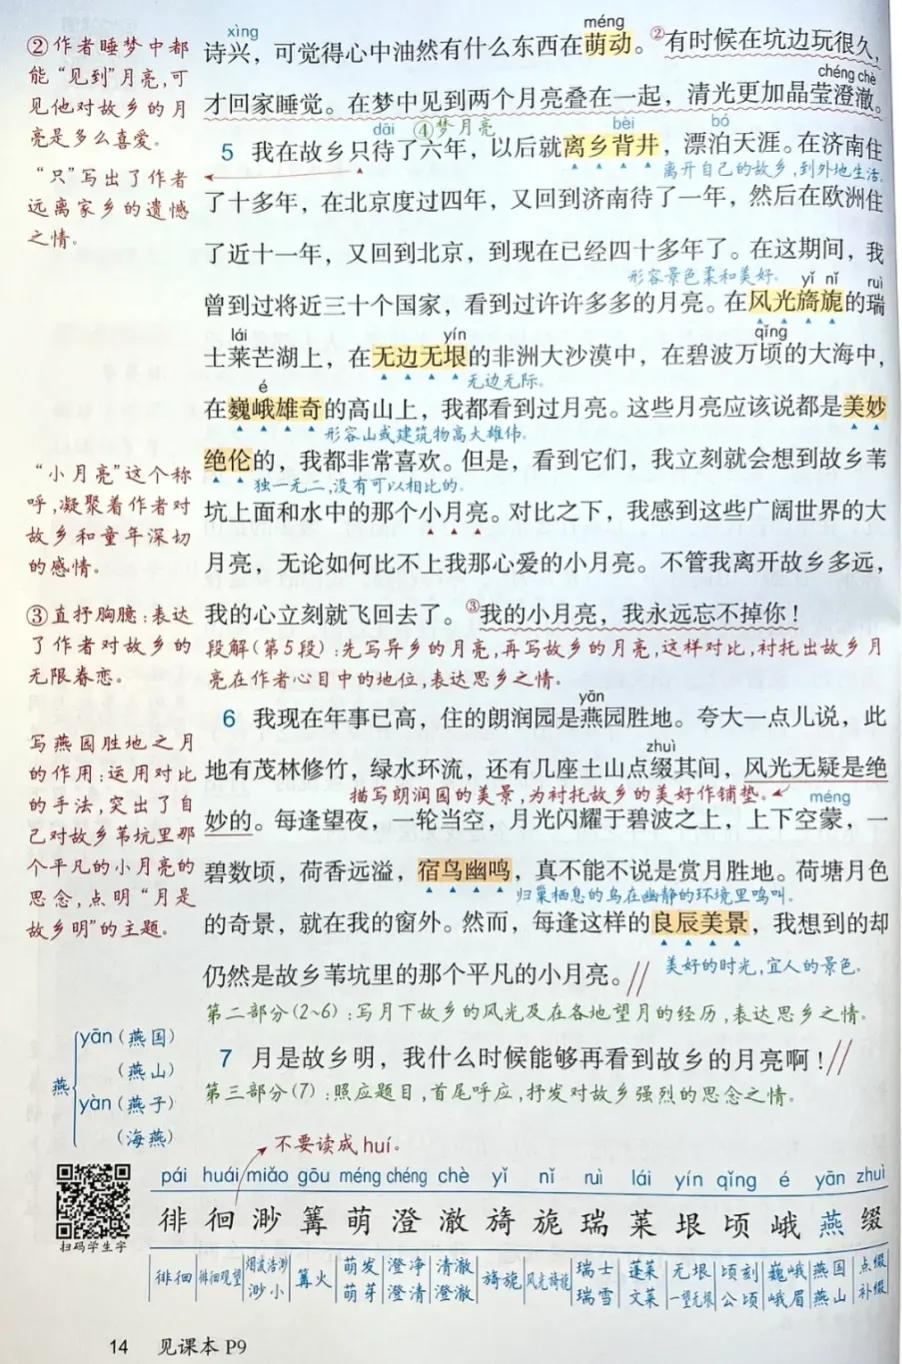 ②作者睡梦中都
能“见到”月亮,可
见他对故乡的月
亮是多么喜爱。
“只”写出了作者
远离家乡的遗憾
之情。
“小月亮”这个称
呼,凝聚着作者对
故乡和童年深切
的感情。
③直抒胸臆:表达
了作者对故乡的
无限眷恋。
写燕园胜地之月
的作用:运用对比
的手法,突出了自
己对故乡苇坑里那
个平凡的小月亮的
思念,点明“月是
故乡明”的主题。
xìng méng
诗兴，可觉得心中油然有什么东西在萌动。②有时候在坑边玩很久，
chéng chè
才回家睡觉。在梦中见到两个月亮叠在一起，清光更加晶莹澄澈。
dāi ④梦月亮 bèi bó
5 我在故乡只待了六年，以后就离乡背井，漂泊天涯。在济南住
离开自己的故乡,到外地生活。
了十多年，在北京度过四年，又回到济南待了一年，然后在欧洲住
了近十一年，又回到北京，到现在已经四十多年了。在这期间，我
形容景色柔和美好。 yǐ nǐ ruì
曾到过将近三十个国家，看到过许许多多的月亮。在风光旖旎的瑞
lái yín qǐng
士莱芒湖上，在无边无垠的非洲大沙漠中，在碧波万顷的大海中，
无边无际。
é
在巍峨雄奇的高山上，我都看到过月亮。这些月亮应该说都是美妙
形容山或建筑物高大雄伟。
绝伦的，我都非常喜欢。但是，看到它们，我立刻就会想到故乡苇
独一无二,没有可以相比的。
坑上面和水中的那个小月亮。对比之下，我感到这些广阔世界的大
月亮，无论如何比不上我那心爱的小月亮。不管我离开故乡多远，
我的心立刻就飞回去了。③我的小月亮，我永远忘不掉你！
段解(第5段):先写异乡的月亮,再写故乡的月亮,这样对比,衬托出故乡月
亮在作者心目中的地位,表达思乡之情。
yān
6 我现在年事已高，住的朗润园是燕园胜地。夸大一点儿说，此
zhuì
地有茂林修竹，绿水环流，还有几座土山点缀其间，风光无疑是绝
描写朗润园的美景,为衬托故乡的美好作铺垫。 méng
妙的。每逢望夜，一轮当空，月光闪耀于碧波之上，上下空蒙，一
碧数顷，荷香远溢，宿鸟幽鸣，真不能不说是赏月胜地。荷塘月色
归巢栖息的鸟在幽静的环境里鸣叫。
的奇景，就在我的窗外。然而，每逢这样的良辰美景，我想到的却
美好的时光,宜人的景色。
仍然是故乡苇坑里的那个平凡的小月亮。//
第二部分(2~6):写月下故乡的风光及在各地望月的经历,表达思乡之情。
7 月是故乡明，我什么时候能够再看到故乡的月亮啊！//
第三部分(7):照应题目,首尾呼应,抒发对故乡强烈的思念之情。
燕
yān(燕国)
(燕山)
yàn(燕子)
(海燕)
不要读成huí。
pái huái miǎo gōu méng chéng chè yǐ nǐ ruì lái yín qǐng é yān zhuì
徘 徊 渺 篝 萌 澄 澈 旖 旎 瑞 莱 垠 顷 峨 燕 缀
徘徊 徘徊观望 烟波浩渺 篝火 萌发 澄净 清澈 旖旎 风光旖旎 瑞士 蓬莱 无垠 顷刻 巍峨 燕国 点缀
渺小 萌芽 澄清 澄澈 瑞雪 文莱 一望无垠 公顷 峨眉 燕山 补缀
扫码学生字
14 见课本 P9